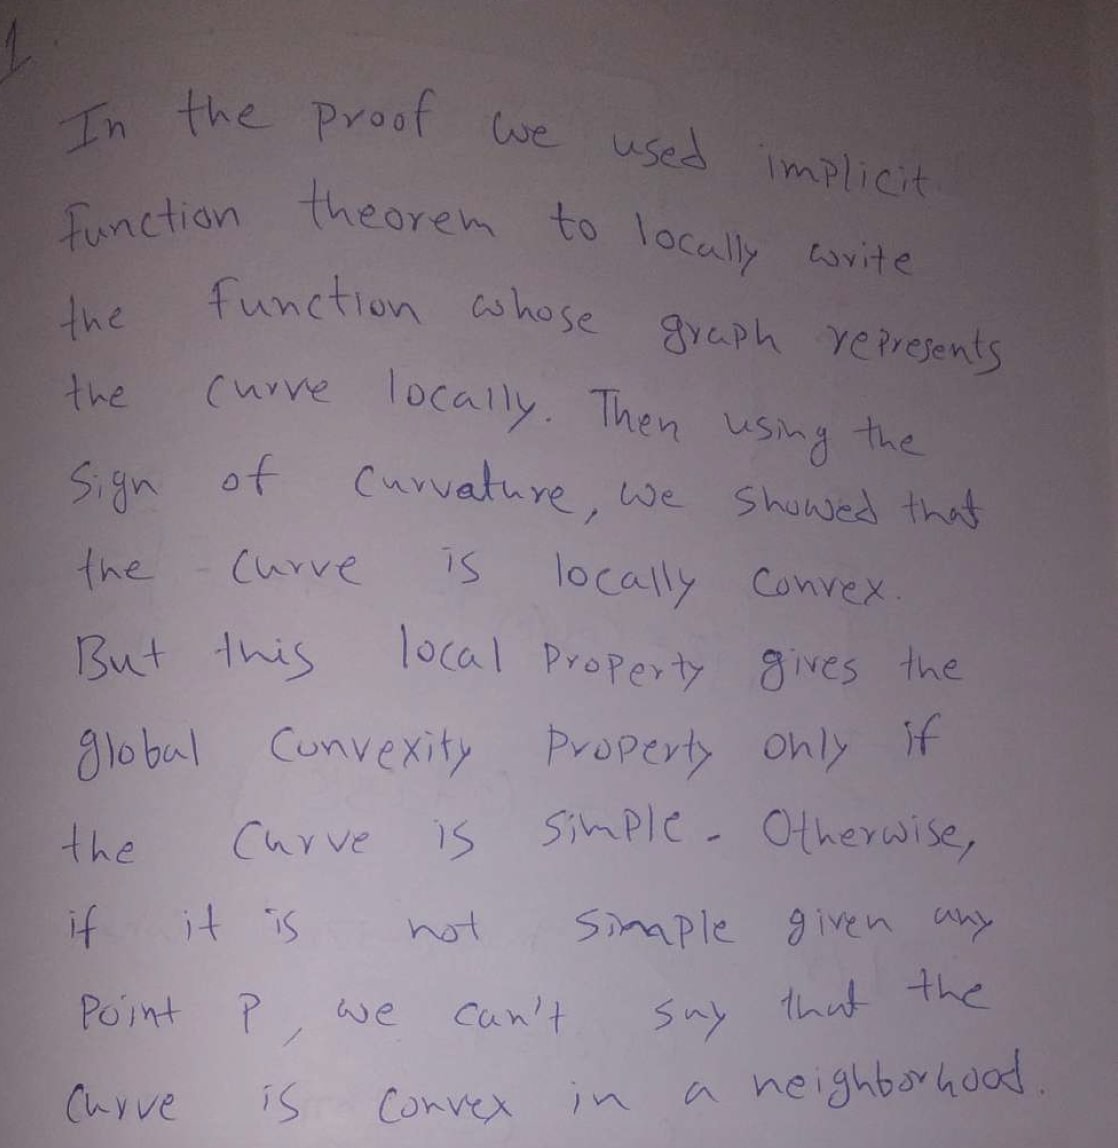 1
In the proof we used implicit
function theorem to locally write
the function whose graph represents
the curve locally. Then using the
Sign of curvature, we showed that
the curve is locally convex.
But this local property gives the
global convexity property only if
the curve is simple. Otherwise,
if it is not simple given any
Point P, we can't say that the
curve is convex in a neighborhood.